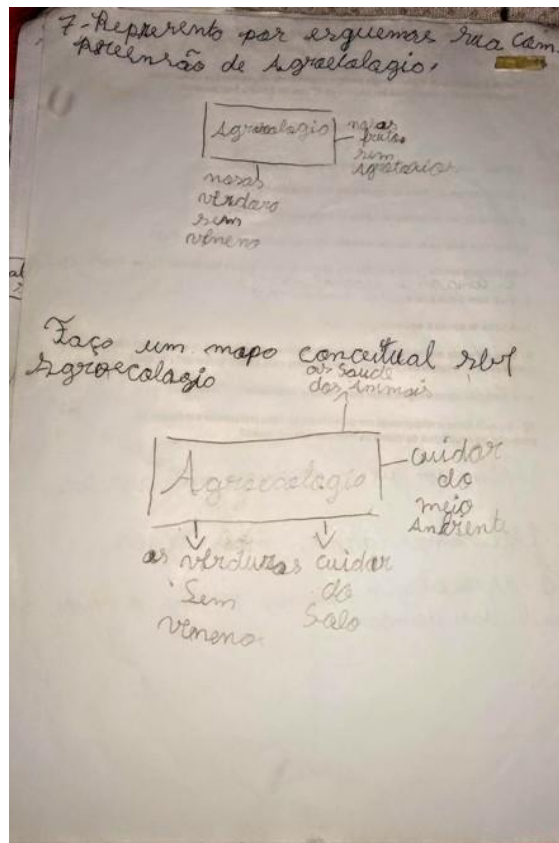 7-Represento por esquemas sua com
preensão de Agroecologia.
Agroecologia
nosas
frutas
sem
Agrotoxios
nosas
verdura
sem
veneno
Faço um mapa conceitual sbr
Agroecologia
as Saude
dos Animais
Agroecologia
cuidar
do
meio
Anbiente
as verduras
Sem
veneno
cuidar
do
Solo